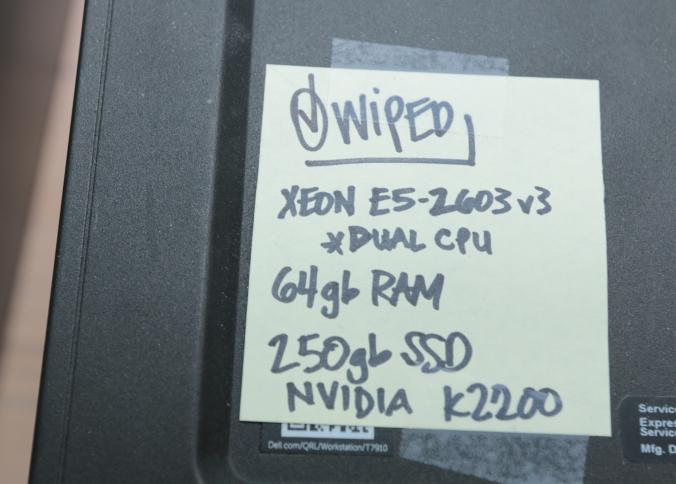 WiPED
XEON E5-2603 v3
*DUAL CPU
64gb RAM
250gb SSD
NVIDIA K2200
Dell.com/QRL/Workstation/T7910
Service
Mfg. D